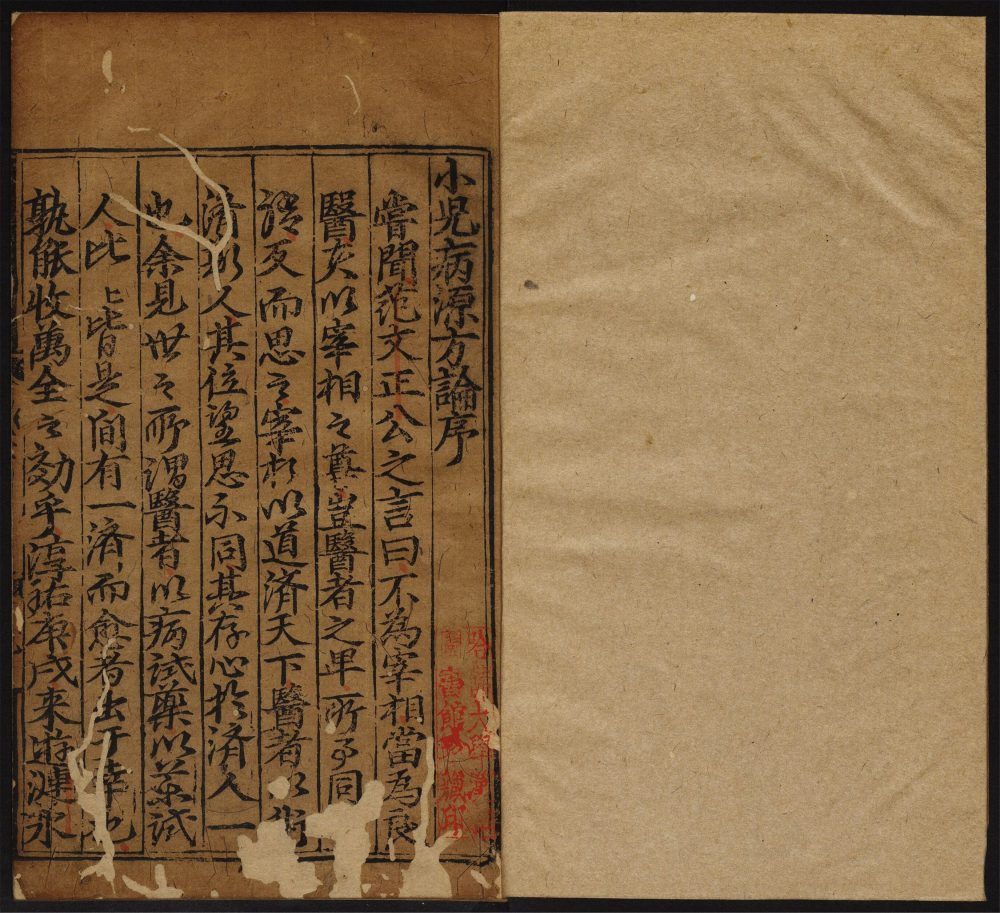 小兒病源方論序
嘗聞范文正公之言曰不為宰相當為良
醫夫以宰相之尊豈醫者之卑所可同
語反而思之宰相以道済天下醫者以術
濟斯人其位望思不同其存心於済人一
也余見世之所謂醫者以病試藥以薬試
人比比皆是間有一済而愈者出于幸也
孰能收萬全之効乎淳祐庚戌来遊漣水
大學
書館 藏印